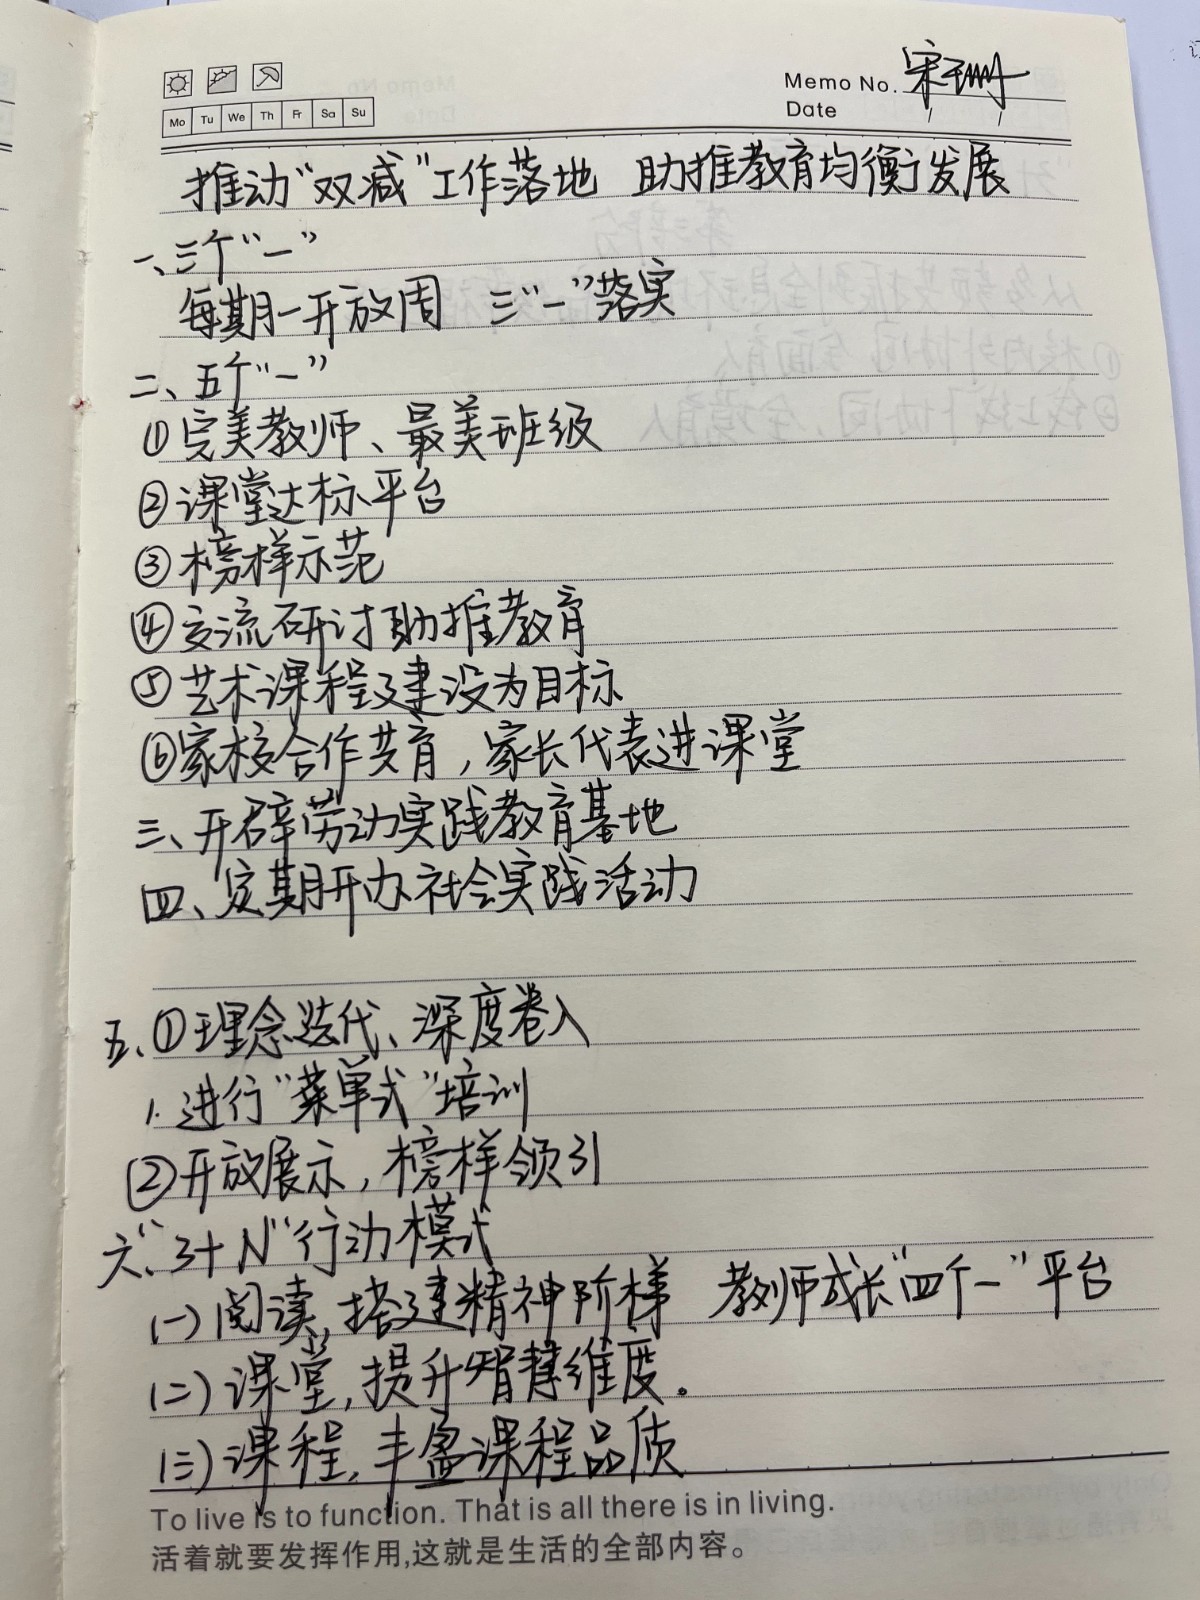 Memo No. 宋
Mo Tu We Th Fr Sa Su
Date / /
推动“双减”工作落地 助推教育均衡发展
一、三个“一”
每期一开放周 三“一”落实
二、五个“一”
①完美教师、最美班级
②课堂达标平台
③榜样示范
④交流研讨助推教育
⑤艺术课程建设为目标
⑥家校合作共育，家长代表进课堂
三、开辟劳动实践教育基地
四、定期开办社会实践活动
五、①理念迭代、深度卷入
1.进行“菜单式”培训
②开放展示，榜样领引
六、“3+N”行动模式
(一)阅读，搭建精神阶梯 教师成长“四个一”平台
(二)课堂，提升智慧维度。
(三)课程，丰盈课程品质
To live is to function. That is all there is in living.
活着就要发挥作用,这就是生活的全部内容。